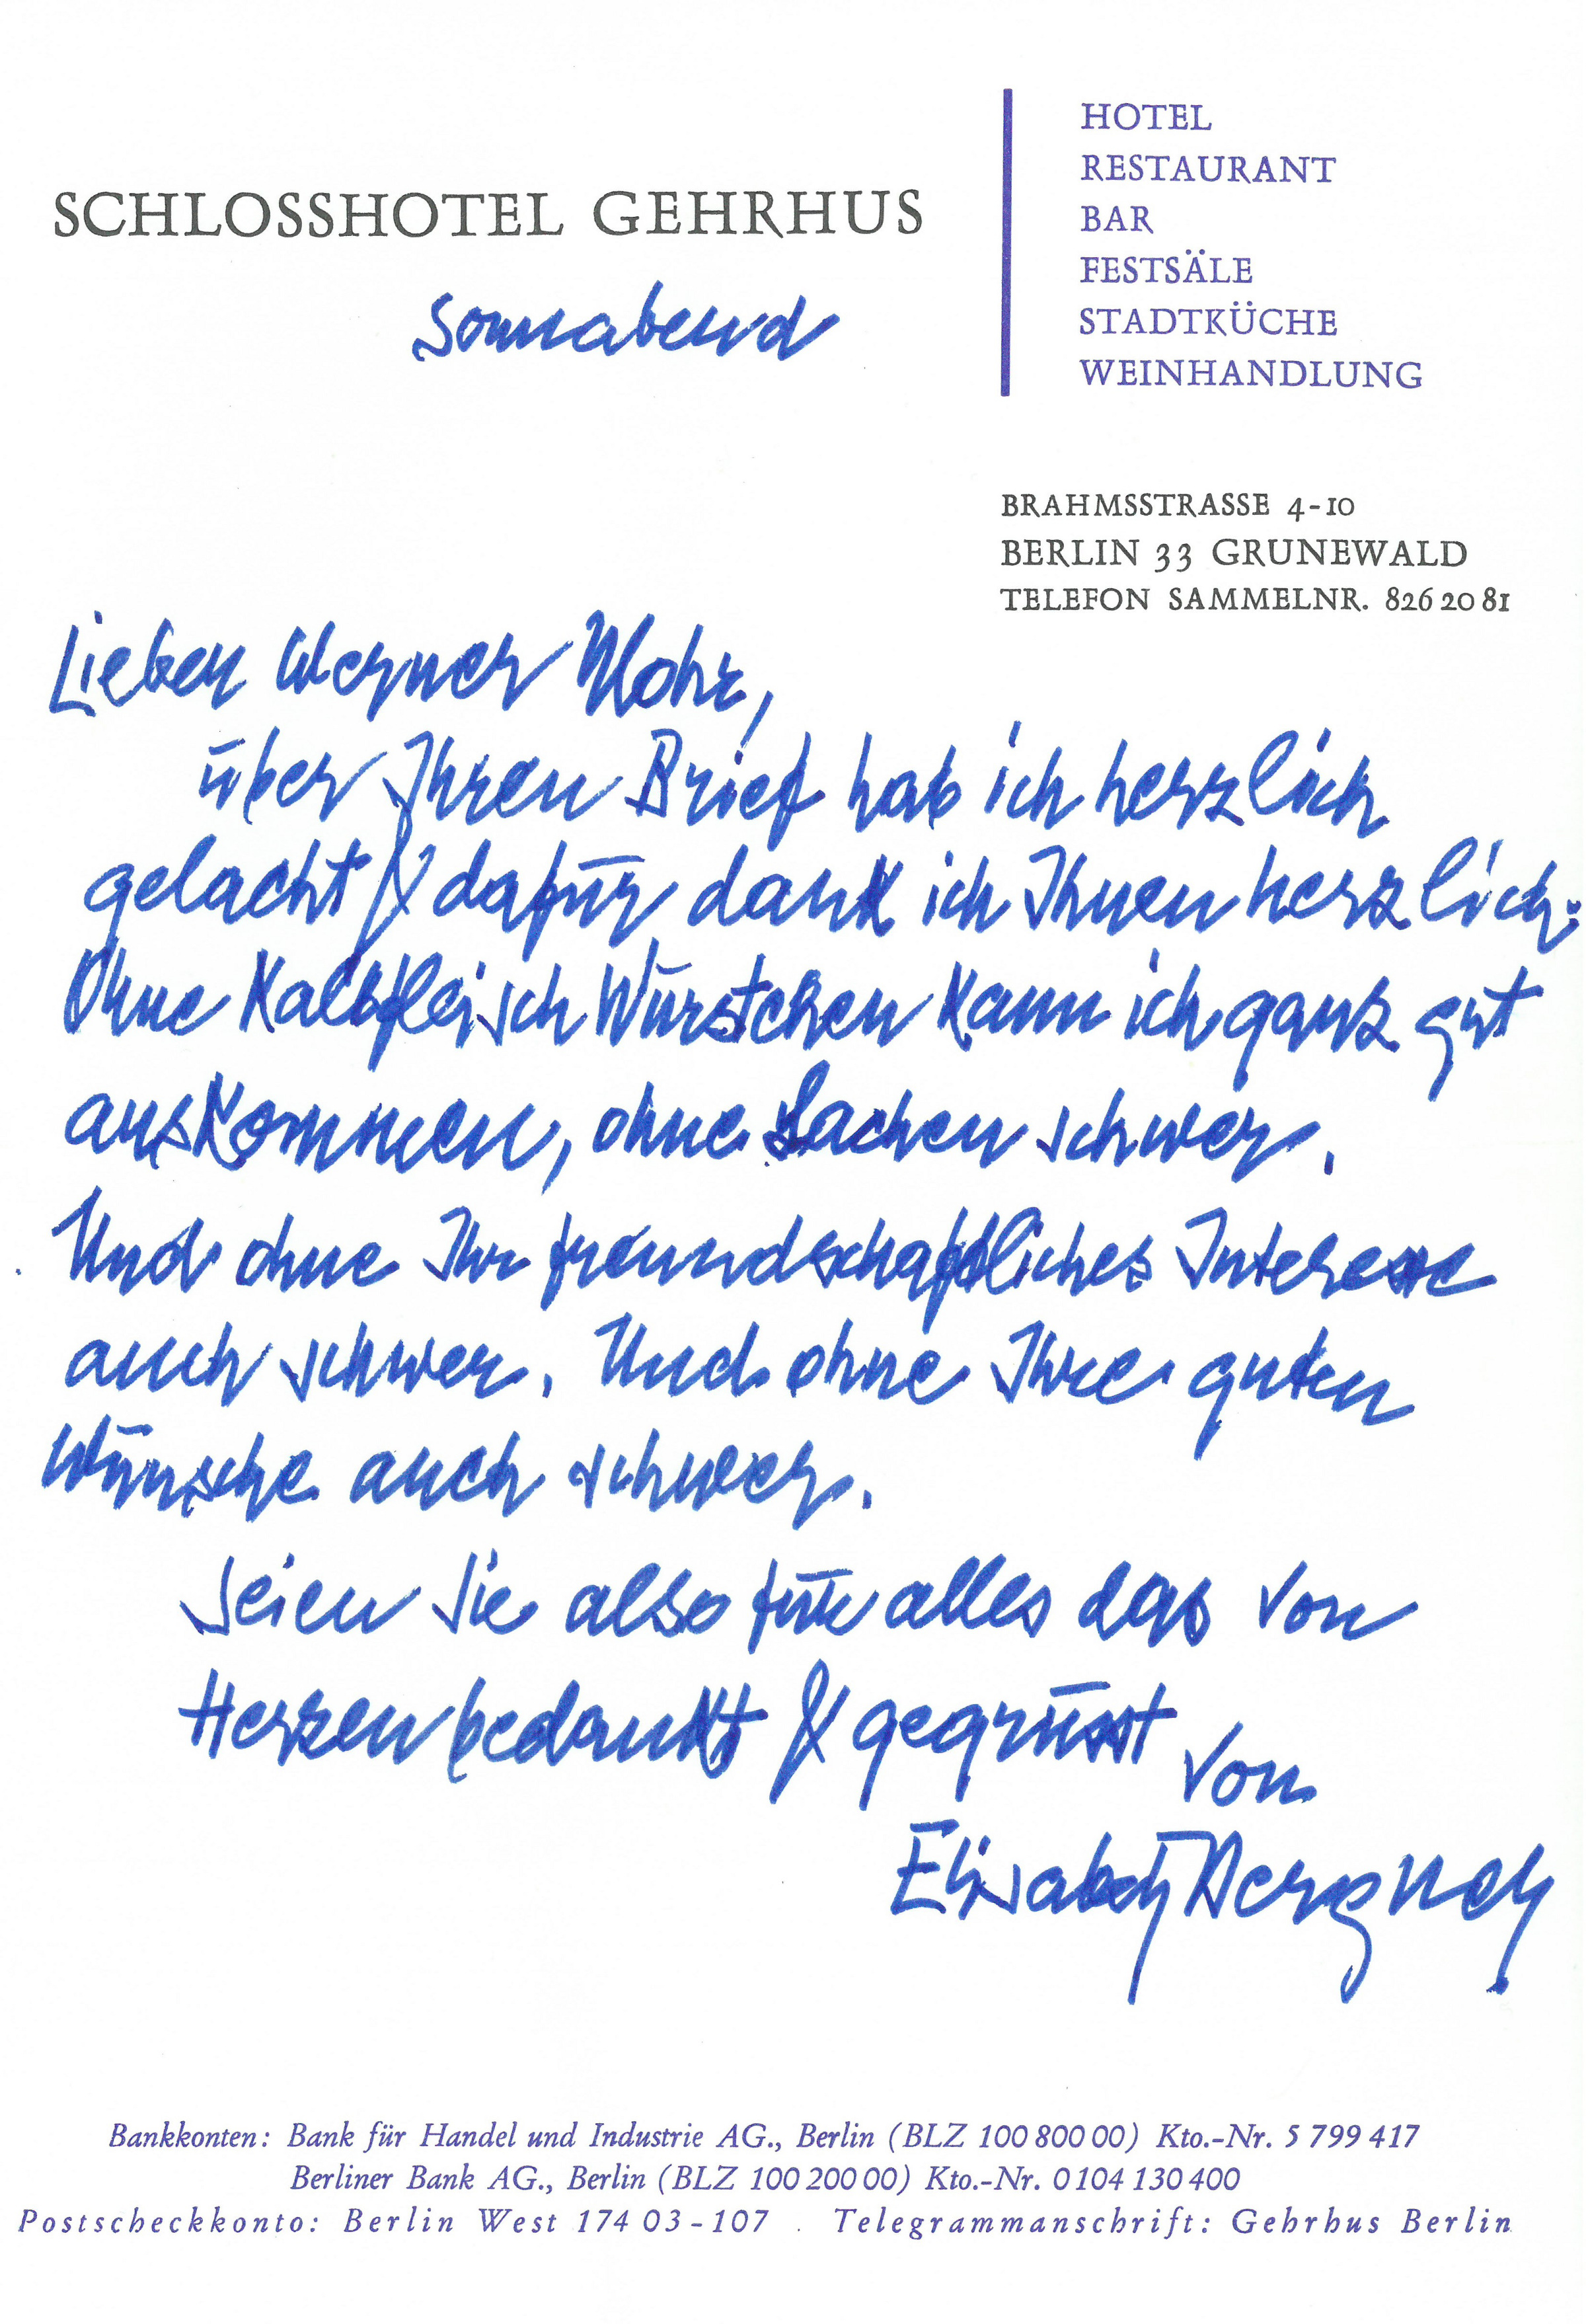 SCHLOSSHOTEL GEHRHUS
HOTEL
RESTAURANT
BAR
FESTSÄLE
STADTKÜCHE
WEINHANDLUNG
Sonnabend
BRAHMSSTRASSE 4-10
BERLIN 33 GRUNEWALD
TELEFON SAMMELNR. 826 20 81
Lieber Werner Mohr,
über Ihren Brief hab ich herzlich
gelacht & dafür dank ich Ihnen herzlich.
Ohne Kalbfleisch Würstchen kann ich ganz gut
auskommen, ohne Lachen schwer.
Und ohne Ihr freundschaftliches Interesse
auch schwer. Und ohne Ihre guten
Wünsche auch schwer.
Seien Sie also für alles das von
Herzen bedankt & gegrüsst von
Elisabeth Bergner
Bankkonten: Bank für Handel und Industrie AG., Berlin (BLZ 100 800 00) Kto.-Nr. 5 799 417
Berliner Bank AG., Berlin (BLZ 100 200 00) Kto.-Nr. 0104 130 400
Postscheckkonto: Berlin West 174 03-107 . Telegrammanschrift: Gehrhus Berlin